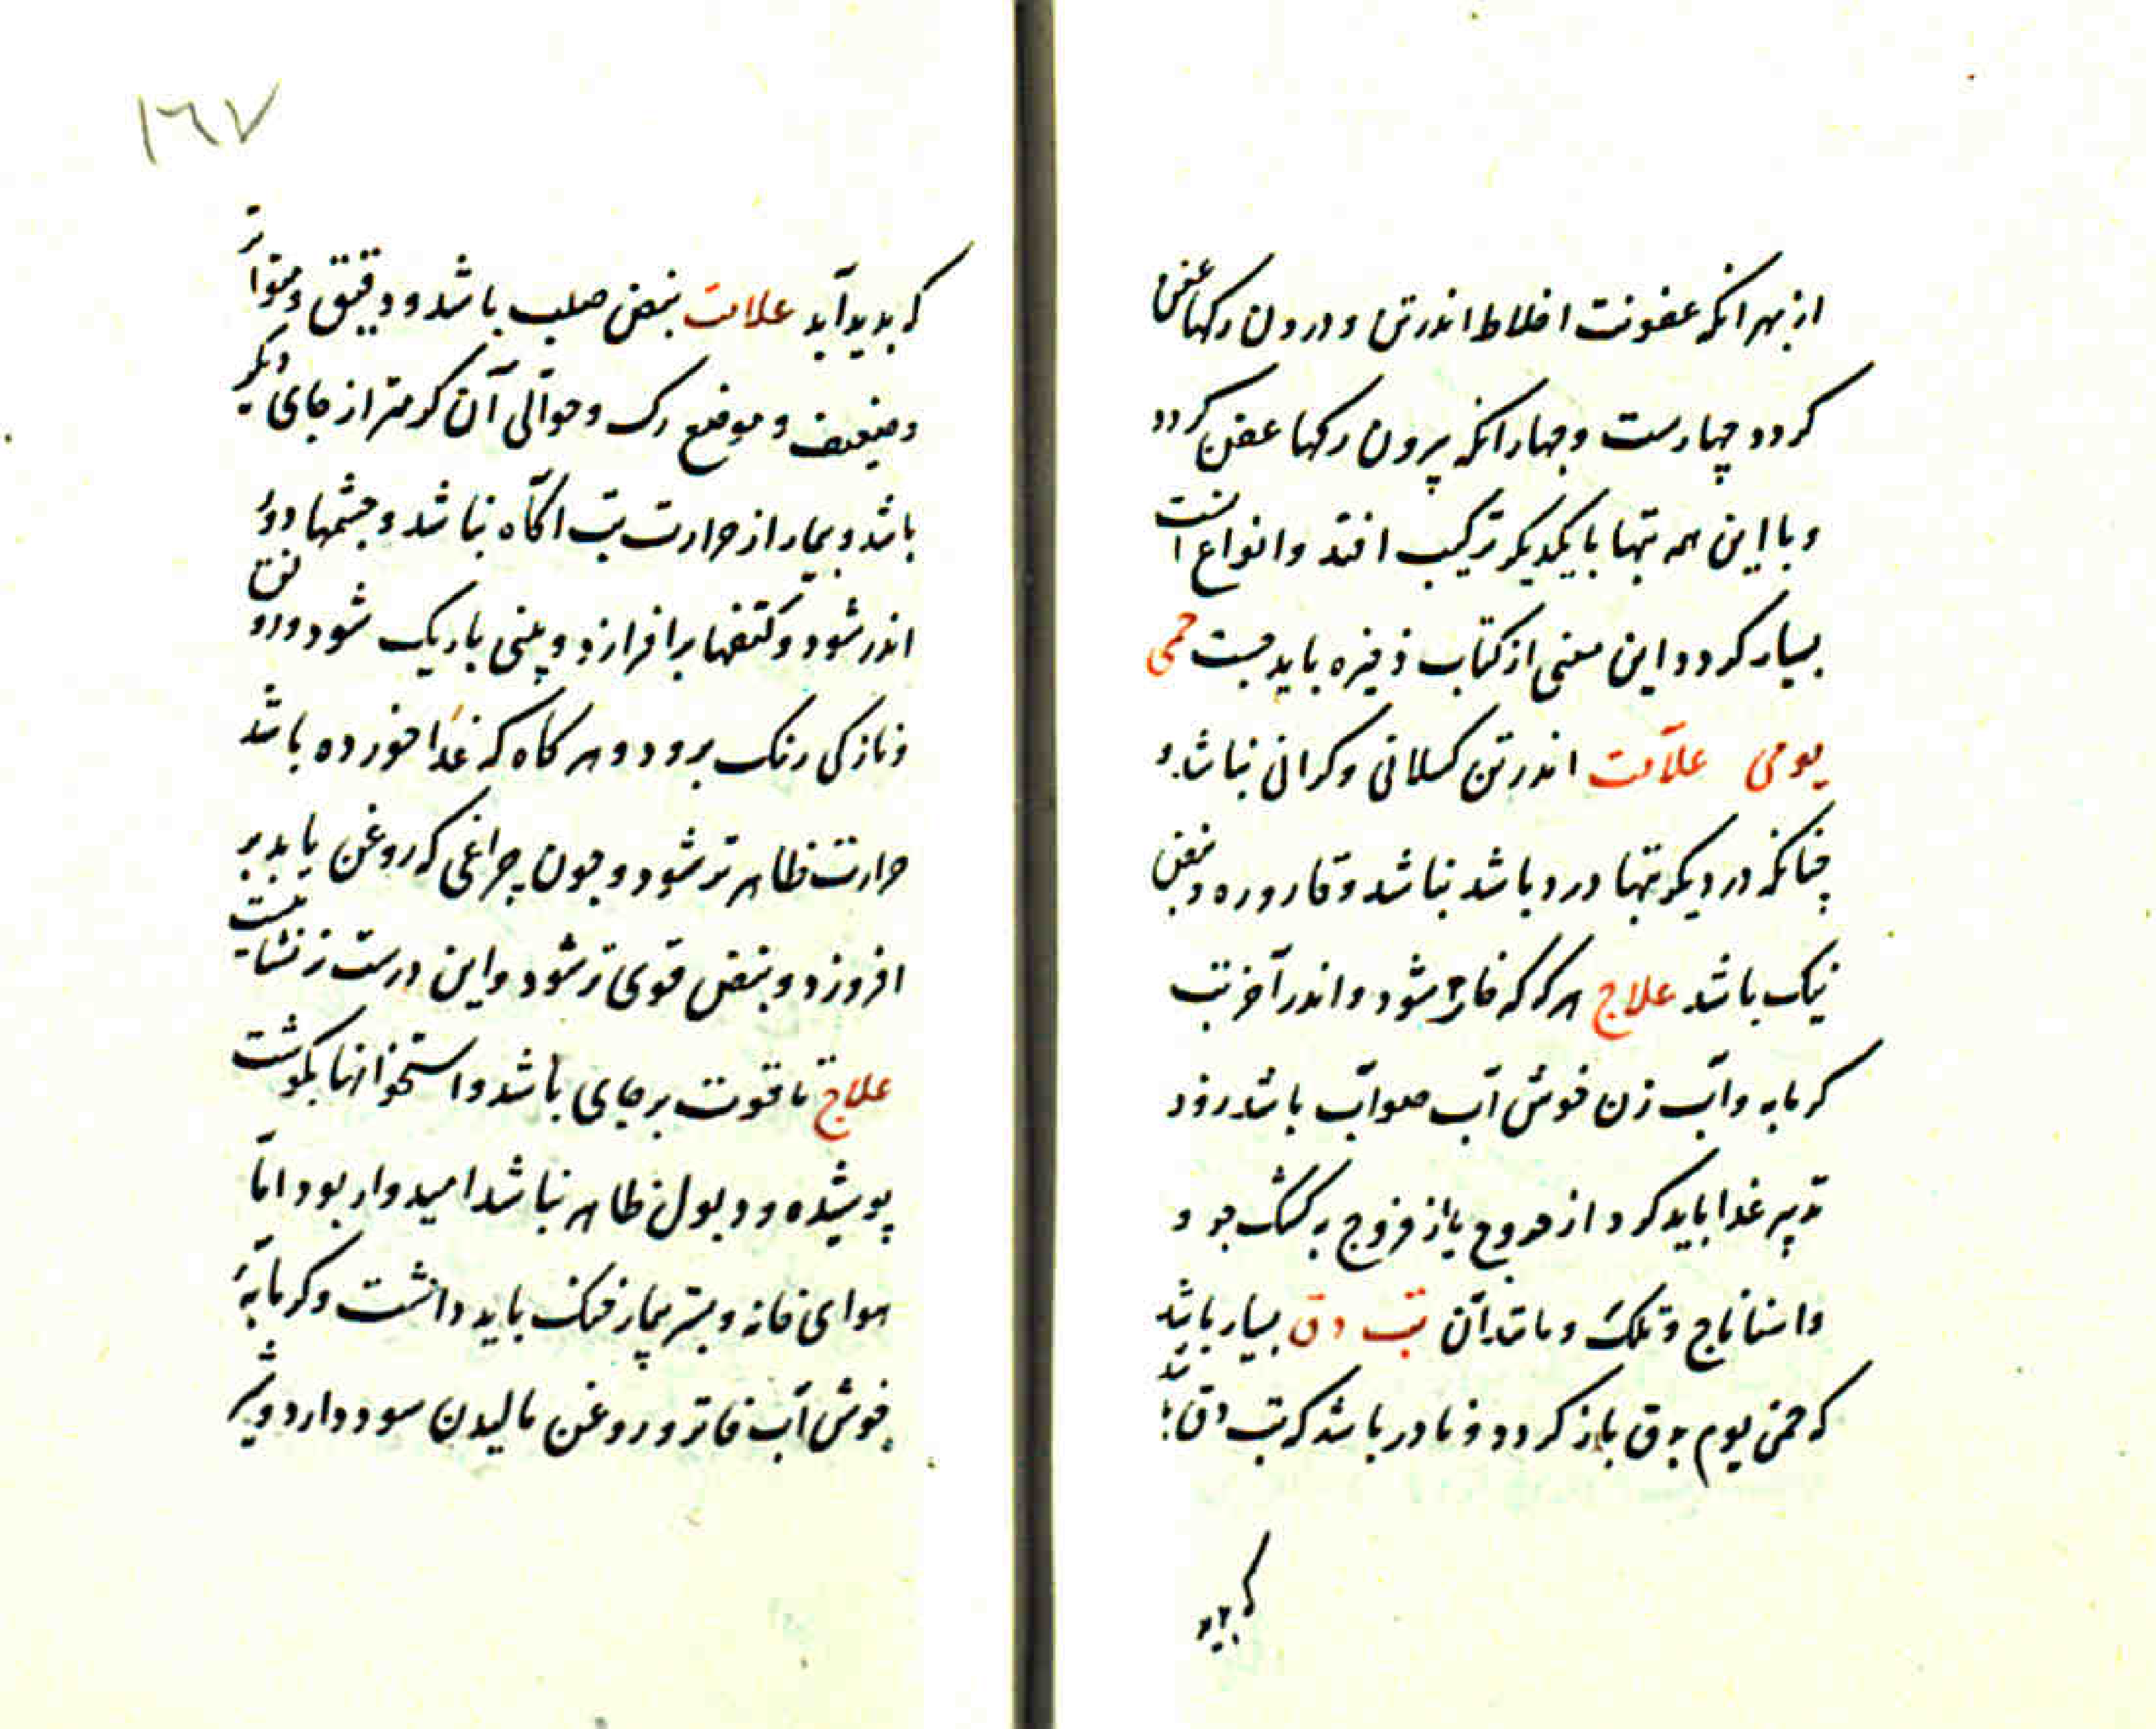 از بهر انکه عفونت اخلاط اندر تن و درون رکها عفن
کردد چهارست و چهار انکه بیرون رکها عفن کردد
و با این همه تبها با یکدیکر ترکیب افتد و انواع
بسیار کردد و این معنی از کتاب ذخیره باید جست حمی
یومی علامت اندر تن کسلانی و کرانی نباشد و
چنانکه در دیکر تبها درد باشد نباشد و قاروره و نبض
نیک باشد علاج هرکه که شود و اندر آخر تب
کرمابه و آب زن خوش آب صواب باشد زود
تدبیر غذا باید کرد از یا از فروج به کشک جو و
و اسفاناج و مانند آن تب دق بسیار باشد
که حمی یوم بدق باز کردد و نادر باشد که تب دق باشد
که بدید
١٦٧
که بدید آید علامت نبض صلب باشد و دقیق و متواتر
و ضعیف و موضع رک و حوالی آن کرمتر از جای دیکر
باشد و بیمار از حرارت تب اکاه نباشد و چشمها دور
اندر شود و کتفها بر افرازد و بینی باریک شود و رونق
و نازکی رنک برود و هر کاه که غذا خورده باشد
حرارت ظاهر تر شود و چون چراغی که روغن یابد بر
افروزد و نبض قوی تر شود و این درست تر نشانیست
علاج تا قوت بر جای باشد و استخوانها بکوشت
پوشیده و دبول ظاهر نباشد امیدوار بود امّا
هوای خانه و بستر بیمار خنک باید داشت و کرمابهٔ
خوش آب فاتر و روغن مالیدن سود دارد و شیر